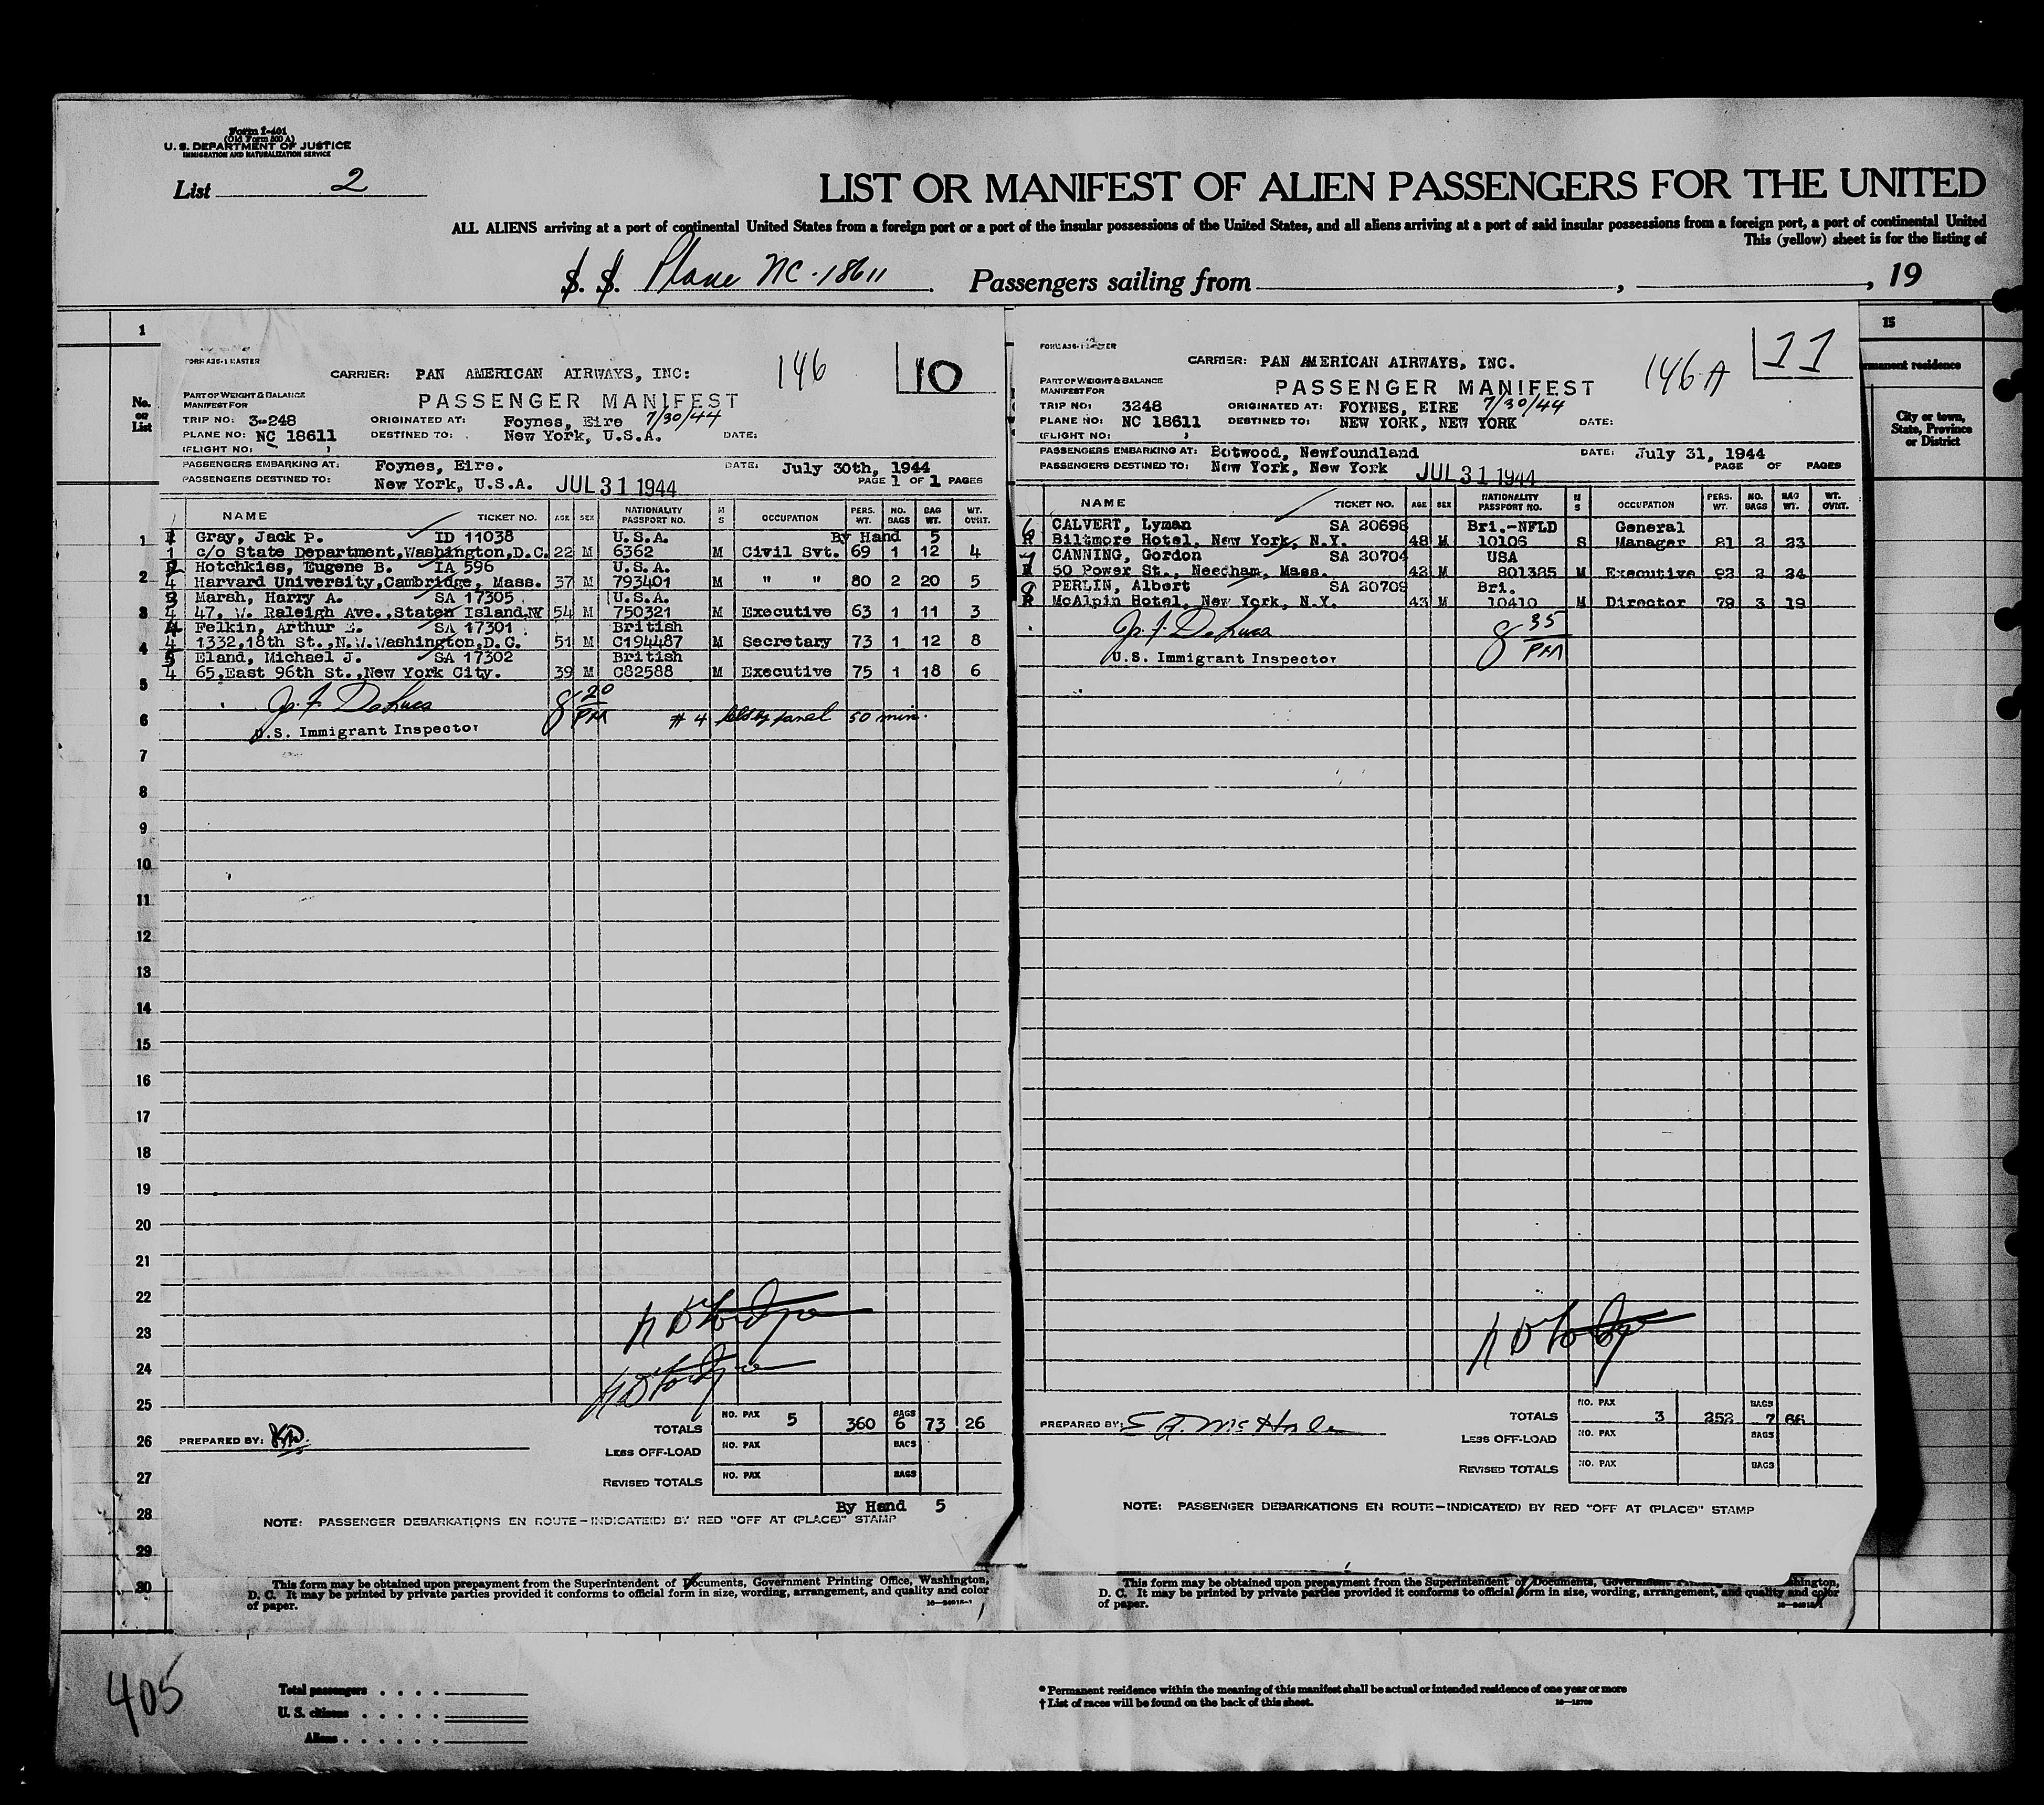 Form I-401
(Old Form 500 A)
U. S. DEPARTMENT OF JUSTICE
IMMIGRATION AND NATURALIZATION SERVICE
List 2
LIST OR MANIFEST OF ALIEN PASSENGERS FOR THE UNITED
ALL ALIENS arriving at a port of continental United States from a foreign port or a port of the insular possessions of the United States, and all aliens arriving at a port of said insular possessions from a foreign port, a port of continental United
This (yellow) sheet is for the listing of
S. S. Plane NC-18611 Passengers sailing from , , 19
1
No. on List
146
10
FORM A36-1 MASTER
CARRIER: PAN AMERICAN AIRWAYS, INC:
PART OF WEIGHT & BALANCE
MANIFEST FOR
PASSENGER MANIFEST
TRIP NO: 3-248 ORIGINATED AT: Foynes, Eire 7/30/44
PLANE NO: NC 18611 DESTINED TO: New York, U.S.A. DATE:
(FLIGHT NO: )
PASSENGERS EMBARKING AT: Foynes, Eire. DATE: July 30th, 1944
PASSENGERS DESTINED TO: New York, U.S.A. JUL 31 1944 PAGE 1 OF 1 PAGES
NAME TICKET NO. AGE SEX NATIONALITY PASSPORT NO. M S OCCUPATION PERS. WT. NO. BAGS BAG WT. WT. OVWT.
1 Gray, Jack P. ID 11038 U.S.A. By Hand 5
1 c/o State Department,Washington,D.C. 22 M 6362 M Civil Svt. 69 1 12 4
2 Hotchkiss, Eugene B. IA 596 U.S.A.
4 Harvard University,Cambridge, Mass. 37 M 793401 M " " 80 2 20 5
3 Marsh, Harry A. SA 17305 U.S.A.
4 47, W. Raleigh Ave.,Staten Island,NY 54 M 750321 M Executive 63 1 11 3
4 Felkin, Arthur E. SA 17301 British
4 1332,18th St.,N.W.Washington,D.C. 51 M C194487 M Secretary 73 1 12 8
5 Eland, Michael J. SA 17302 British
4 65,East 96th St.,New York City. 39 M C82588 M Executive 75 1 18 6
J. F. DeLuca 8 20 PM # 4 50 min.
U.S. Immigrant Inspector
1
2
3
4
5
6
7
8
9
10
11
12
13
14
15
16
17
18
19
20
21
22
23
24
25
26
27
28
29
30
TOTALS NO. PAX 5 360 BAGS 6 73 26
PREPARED BY:
LESS OFF-LOAD NO. PAX BAGS
REVISED TOTALS NO. PAX BAGS
By Hand 5
NOTE: PASSENGER DEBARKATIONS EN ROUTE-INDICATE(D) BY RED "OFF AT (PLACE)" STAMP
This form may be obtained upon prepayment from the Superintendent of Documents, Government Printing Office, Washington,
D. C. It may be printed by private parties provided it conforms to official form in size, wording, arrangement, and quality and color
of paper.
146 A
11
CARRIER: PAN AMERICAN AIRWAYS, INC.
PART OF WEIGHT & BALANCE
MANIFEST FOR
PASSENGER MANIFEST
TRIP NO: 3248 ORIGINATED AT: FOYNES, EIRE 7/30/44
PLANE NO: NC 18611 DESTINED TO: NEW YORK, NEW YORK DATE:
(FLIGHT NO: )
PASSENGERS EMBARKING AT: Botwood, Newfoundland DATE: July 31, 1944
PASSENGERS DESTINED TO: New York, New York JUL 31 1944 PAGE OF PAGES
NAME TICKET NO. AGE SEX NATIONALITY PASSPORT NO. M S OCCUPATION PERS. WT. NO. BAGS BAG WT. WT. OVWT.
6 CALVERT, Lyman SA 20698 Bri.-NFLD General
R Biltmore Hotel, New York, N.Y. 48 M 10106 S Manager 81 2 23
7 CANNING, Gordon SA 20704 USA
R 50 Power St., Needham, Mass. 42 M 801385 M Executive 92 2 24
8 PERLIN, Albert SA 20709 Bri.
R McAlpin Hotel, New York, N.Y. 43 M 10410 M Director 79 3 19
J. F. DeLuca 8 35 PM
U.S. Immigrant Inspector
TOTALS NO. PAX 3 252 BAGS 7 66
PREPARED BY: E A. McHale
LESS OFF-LOAD NO. PAX BAGS
REVISED TOTALS NO. PAX BAGS
NOTE: PASSENGER DEBARKATIONS EN ROUTE-INDICATE(D) BY RED "OFF AT (PLACE)" STAMP
This form may be obtained upon prepayment from the Superintendent of Documents, Government
D. C. It may be printed by private parties provided it conforms to official form in size, wording, arrangement, and quality and color
of paper.
15
manent residence
City or town, State, Province or District
405
Total passengers
U. S. citizens
Aliens
* Permanent residence within the meaning of this manifest shall be actual or intended residence of one year or more
† List of races will be found on the back of this sheet.